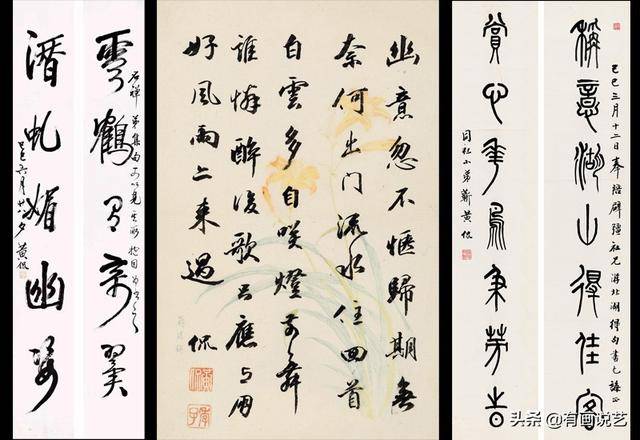 稱意湖山得佳客
己巳三月十二日奉陪辟疆社兄游北湖得句書乞
賞心華鳥兼芳
同社小弟蘄黃侃
幽意忽不愜歸期無
奈何出门流水住回首
白雲多自咲燈前舞
誰憐醉後歌只應与朋
好風雨亦來過 侃
雲鶴有奇翼
石禪弟集句可以見其所抱因為書之
潛虬媚幽姿
己巳六月廿八夕 黃侃
头条 @有画说艺